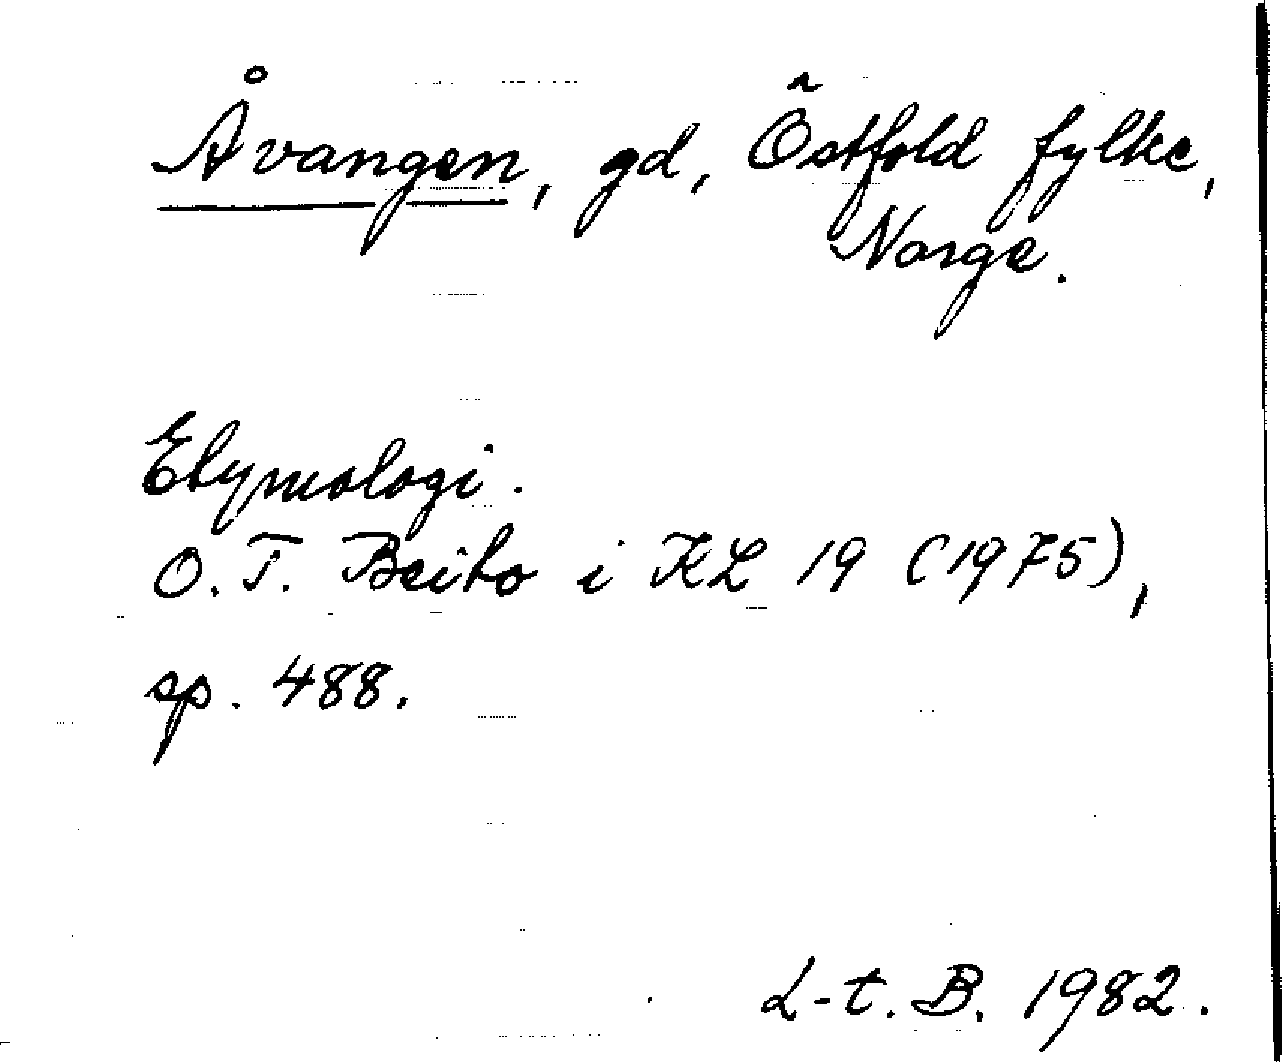 Åvangen, gd, Östfold fylke,
Norge.
Etymologi.
O. T. Beito i KL 19 (1975),
sp. 488.
L-t. B. 1982.